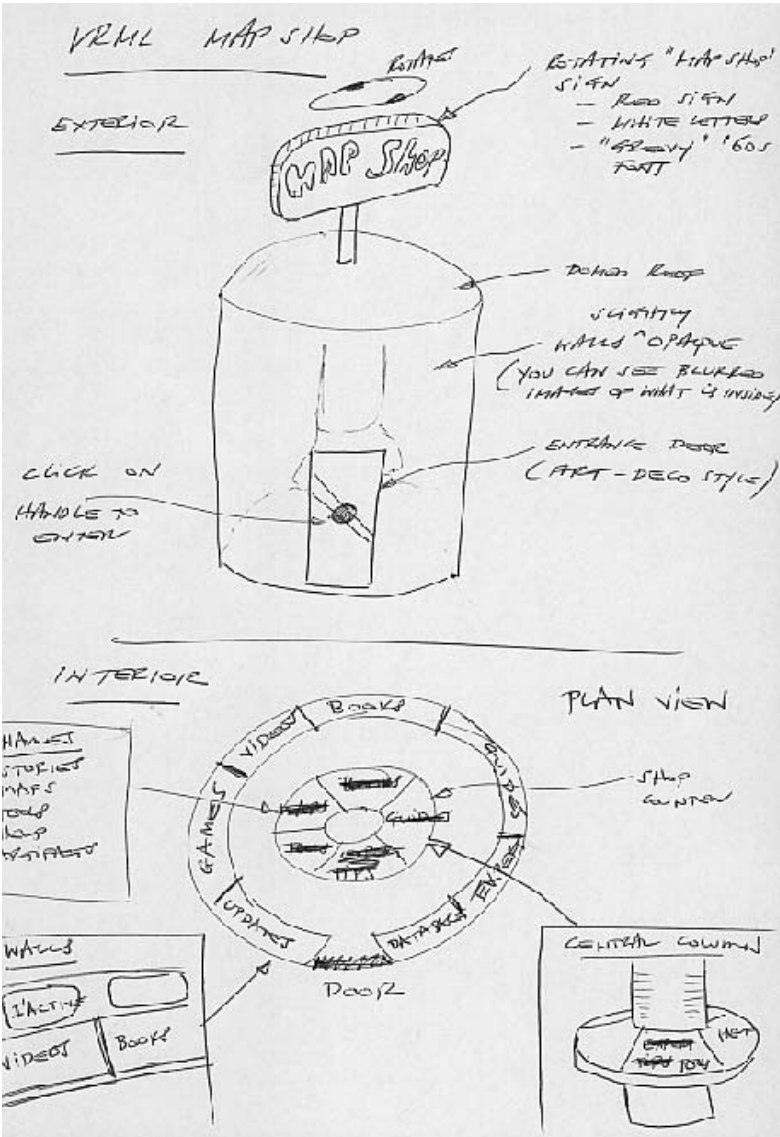 VRML MAP SHOP
EXTERIOR
ROTATES
MAP SHOP
ROTATING "MAP SHOP"
SIGN
- RED SIGN
- WHITE LETTERS
- "GROOVY" '60S
FONT
DOMED ROOF
SLIGHTLY
WALLS ^ OPAQUE
(YOU CAN SEE BLURRED
IMAGES OF WHAT IS INSIDE)
ENTRANCE DOOR
(ART-DECO STYLE)
CLICK ON
HANDLE TO
ENTER
INTERIOR
PLAN VIEW
STORIES
MAPS
VIDEOS
BOOKS
GUIDES
GAMES
UPDATES
DATABASE
DOOR
GUIDES
SHOP
COUNTER
WALLS
I'ACTIVE
VIDEOS
BOOKS
CENTRAL COLUMN